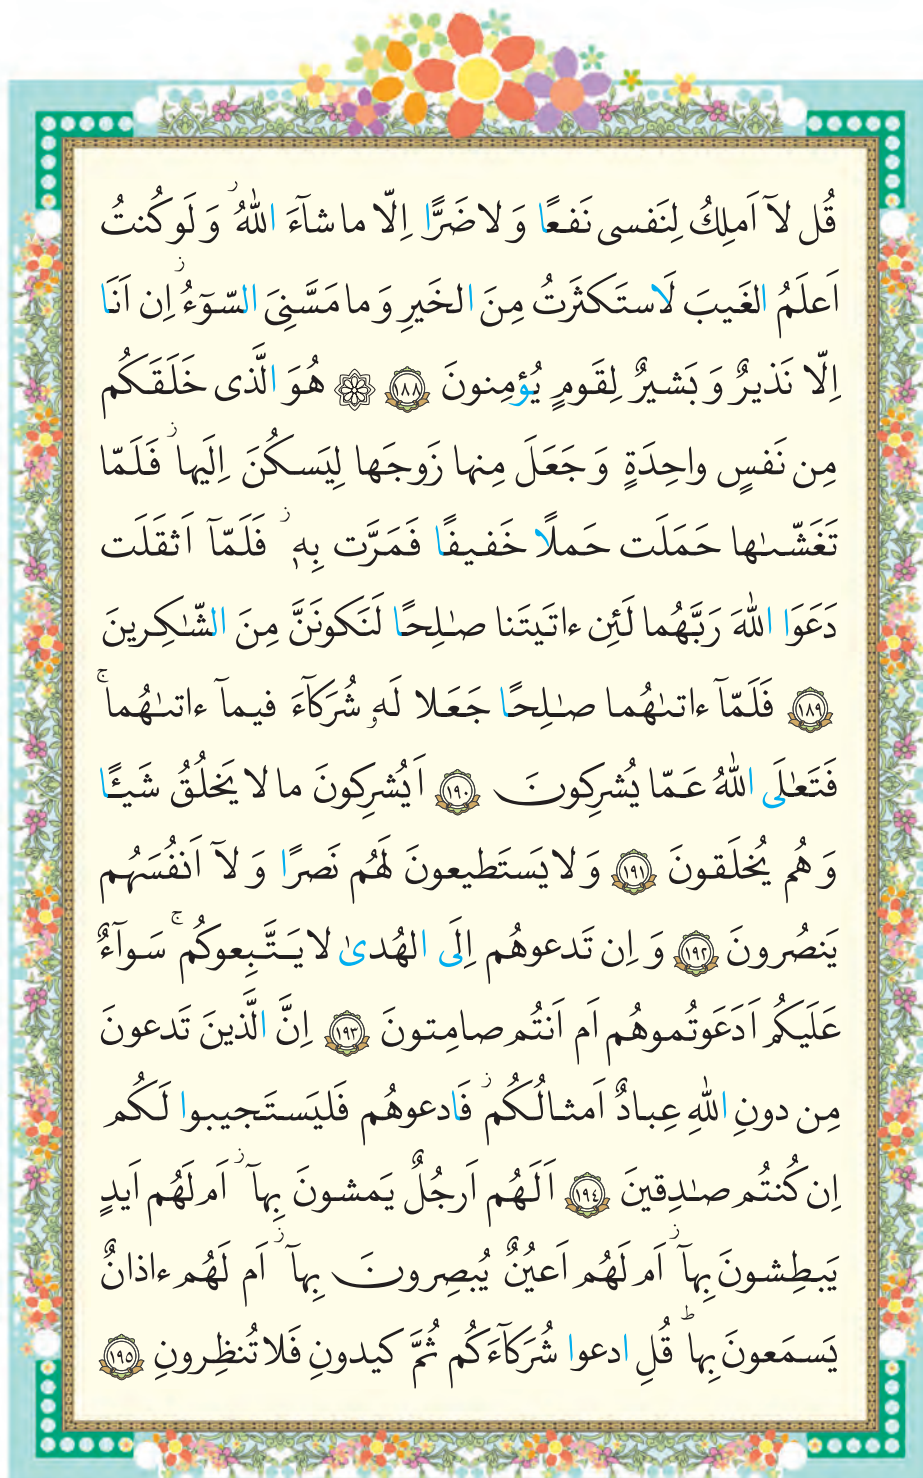 قُل لآ اَملِكُ لِنَفسی نَفعًا وَ لا ضَرًّا اِلّا ما شآءَ اللهُ ۚ وَ لَو کُنتُ
اَعلَمُ الغَیبَ لَاستَکثَرتُ مِنَ الخَیرِ وَ ما مَسَّنِیَ السّوٓءُ ۚ اِن اَنَا
اِلّا نَذیرٌ وَ بَشیرٌ لِقَومٍ یُؤمِنونَ ﴿١٨٨﴾ ۞ هُوَ الَّذی خَلَقَکُم
مِن نَفسٍ واحِدَةٍ وَ جَعَلَ مِنها زَوجَها لِیَسکُنَ اِلَیها ۖ فَلَمّا
تَغَشّىٰها حَمَلَت حَملًا خَفیفًا فَمَرَّت بِهٖ ۖ فَلَمّآ اَثقَلَت
دَعَوَا اللهَ رَبَّهُما لَئِن ءاتَیتَنا صٰلِحًا لَنَکونَنَّ مِنَ الشّٰکِرینَ
﴿١٨٩﴾ فَلَمّآ ءاتىٰهُما صٰلِحًا جَعَلا لَهٗ شُرَکآءَ فیمآ ءاتىٰهُما ۚ
فَتَعٰلَی اللهُ عَمّا یُشرِکونَ ﴿١٩٠﴾ اَیُشرِکونَ ما لا یَخلُقُ شَیـًٔا
وَ هُم یُخلَقونَ ﴿١٩١﴾ وَ لا یَستَطیعونَ لَهُم نَصرًا وَ لآ اَنفُسَهُم
یَنصُرونَ ﴿١٩٢﴾ وَ اِن تَدعوهُم اِلَی الهُدىٰ لا یَتَّبِعوکُم ۚ سَوآءٌ
عَلَیکُم اَدَعَوتُموهُم اَم اَنتُم صامِتونَ ﴿١٩٣﴾ اِنَّ الَّذینَ تَدعونَ
مِن دونِ اللهِ عِبادٌ اَمثالُکُم ۖ فَادعوهُم فَلیَستَجیبوا لَکُم
اِن کُنتُم صٰدِقینَ ﴿١٩٤﴾ اَلَهُم اَرجُلٌ یَمشونَ بِهآ ۖ اَم لَهُم اَیدٍ
یَبطِشونَ بِهآ ۖ اَم لَهُم اَعیُنٌ یُبصِرونَ بِهآ ۖ اَم لَهُم ءاذانٌ
یَسمَعونَ بِها ؕ قُلِ ادعوا شُرَکآءَکُم ثُمَّ کیدونِ فَلا تُنظِرونِ ﴿١٩٥﴾